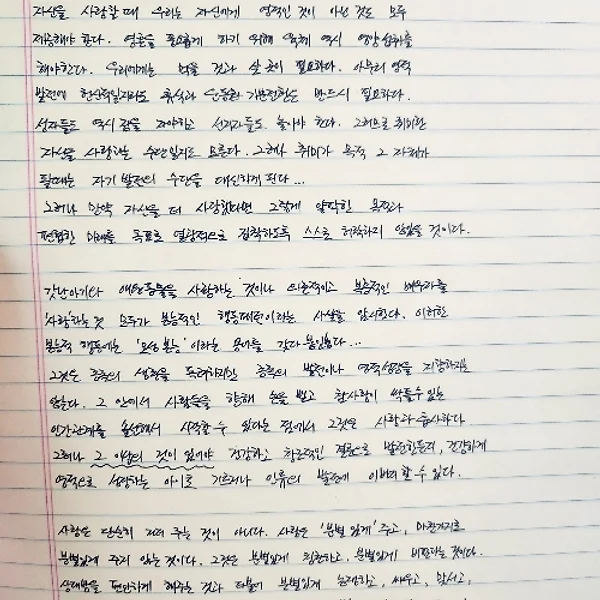 자신을 사랑할 때 우리는 자신에게 영적인 것이 아닌 것도 모두
제공해야 한다. 영혼을 풍요롭게 하기 위해 육체 역시 영양 섭취를
해야한다. 우리에게는 먹을 것과 살 곳이 필요하다. 아무리 영적
발전에 헌신적일지라도 휴식과 운동과 기분전환은 반드시 필요하다.
성자들도 역시 잠을 자야하고 선지자들도 놀아야 한다. 그러므로 취미란
자신을 사랑하는 수단일지도 모른다. 그러나 취미가 목적 그 자체가
될때는 자기 발전의 수단을 대신하게 된다...
그러나 만약 자신을 더 사랑한다면 그렇게 얄팍한 목적과
편협한 미래를 목표로 열광적으로 집착하도록 스스로 허락하지 않았을 것이다.

갓난아기나 애완동물을 사랑하는 것이나 의존적이고 복종적인 배우자를
사랑하는 것 모두가 본능적인 행동패턴이라는 사실을 암시한다. 이러한
본능적 행동에는 '모성 본능' 이라는 용어를 갖다 붙인다...
그것은 종족의 생존을 독려하지만 종족의 발전이나 영적성장을 지향하지는
않는다. 그 안에서 사람들을 향해 손을 뻗고 참사랑이 싹틀수 있는
인간관계를 출산해서 시작할 수 있다는 점에서 그것은 사랑과 흡사하다.
그러나 그 이상의 것이 있어야 건강하고 창조적인 결혼으로 발전한든지, 건강하게
영적으로 성장하는 아이로 기르거나 인류의 발전에 이바지할 수 있다.

사랑은 단순히 거저 주는 것이 아니다. 사랑은 '분별 있게' 주고, 마찬가지로
분별있게 주지 않는 것이다. 그것은 분별있게 칭찬하고, 분별있게 비판하는 것이다.
상대방을 편안하게 해주는 것과 더불어 분별있게 논쟁하고, 싸우고, 맞서고,